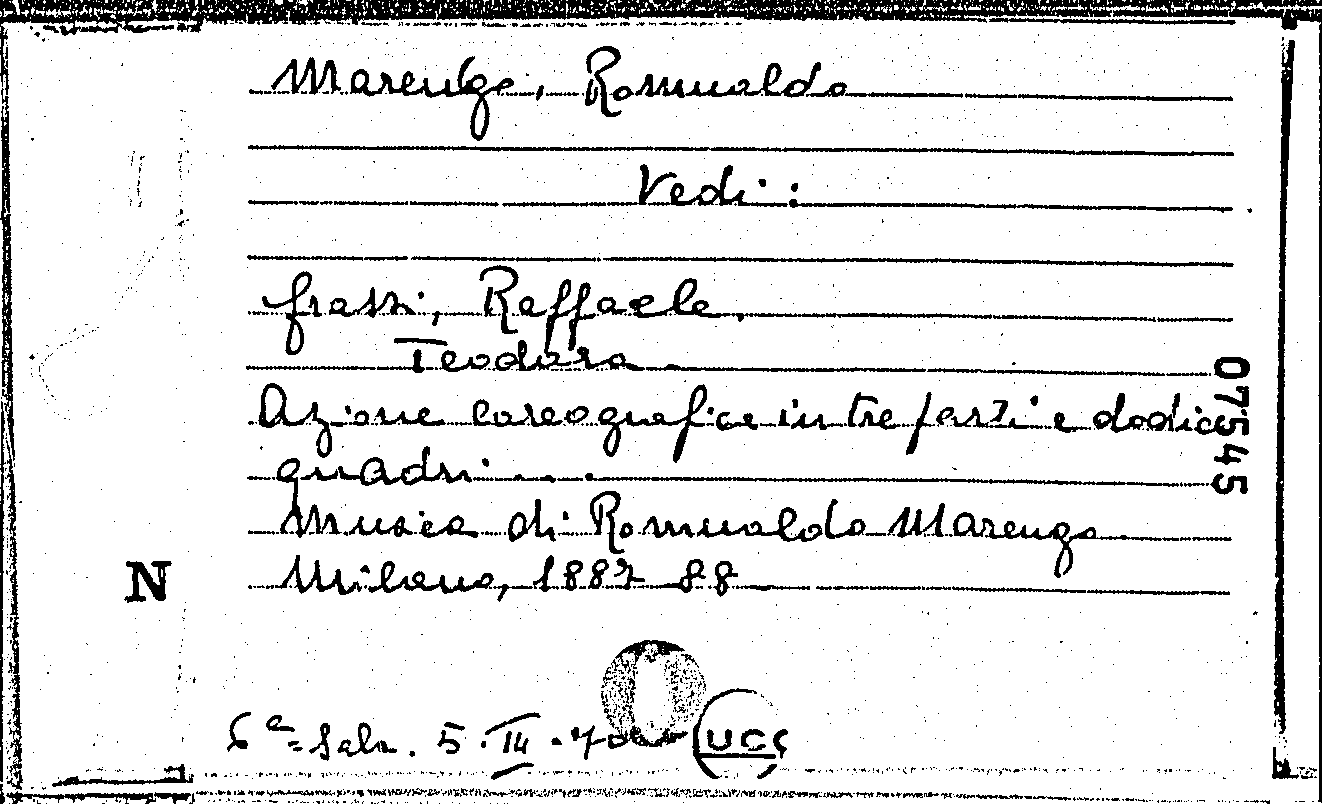 Marengo, Romualdo
Vedi:
Grassi, Raffaele.
Teodora
Azione coreografica in tre parti e dodici
quadri . . .
Musica di Romualdo Marengo
Milano, 1887 88
07545
N
6ª Sala. 5. III.
UCC